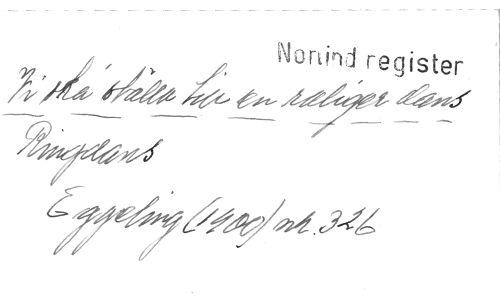 Nonind register
Vi ska' ställa till en roliger dans
Ringdans
Eggeling (1900) nr. 326